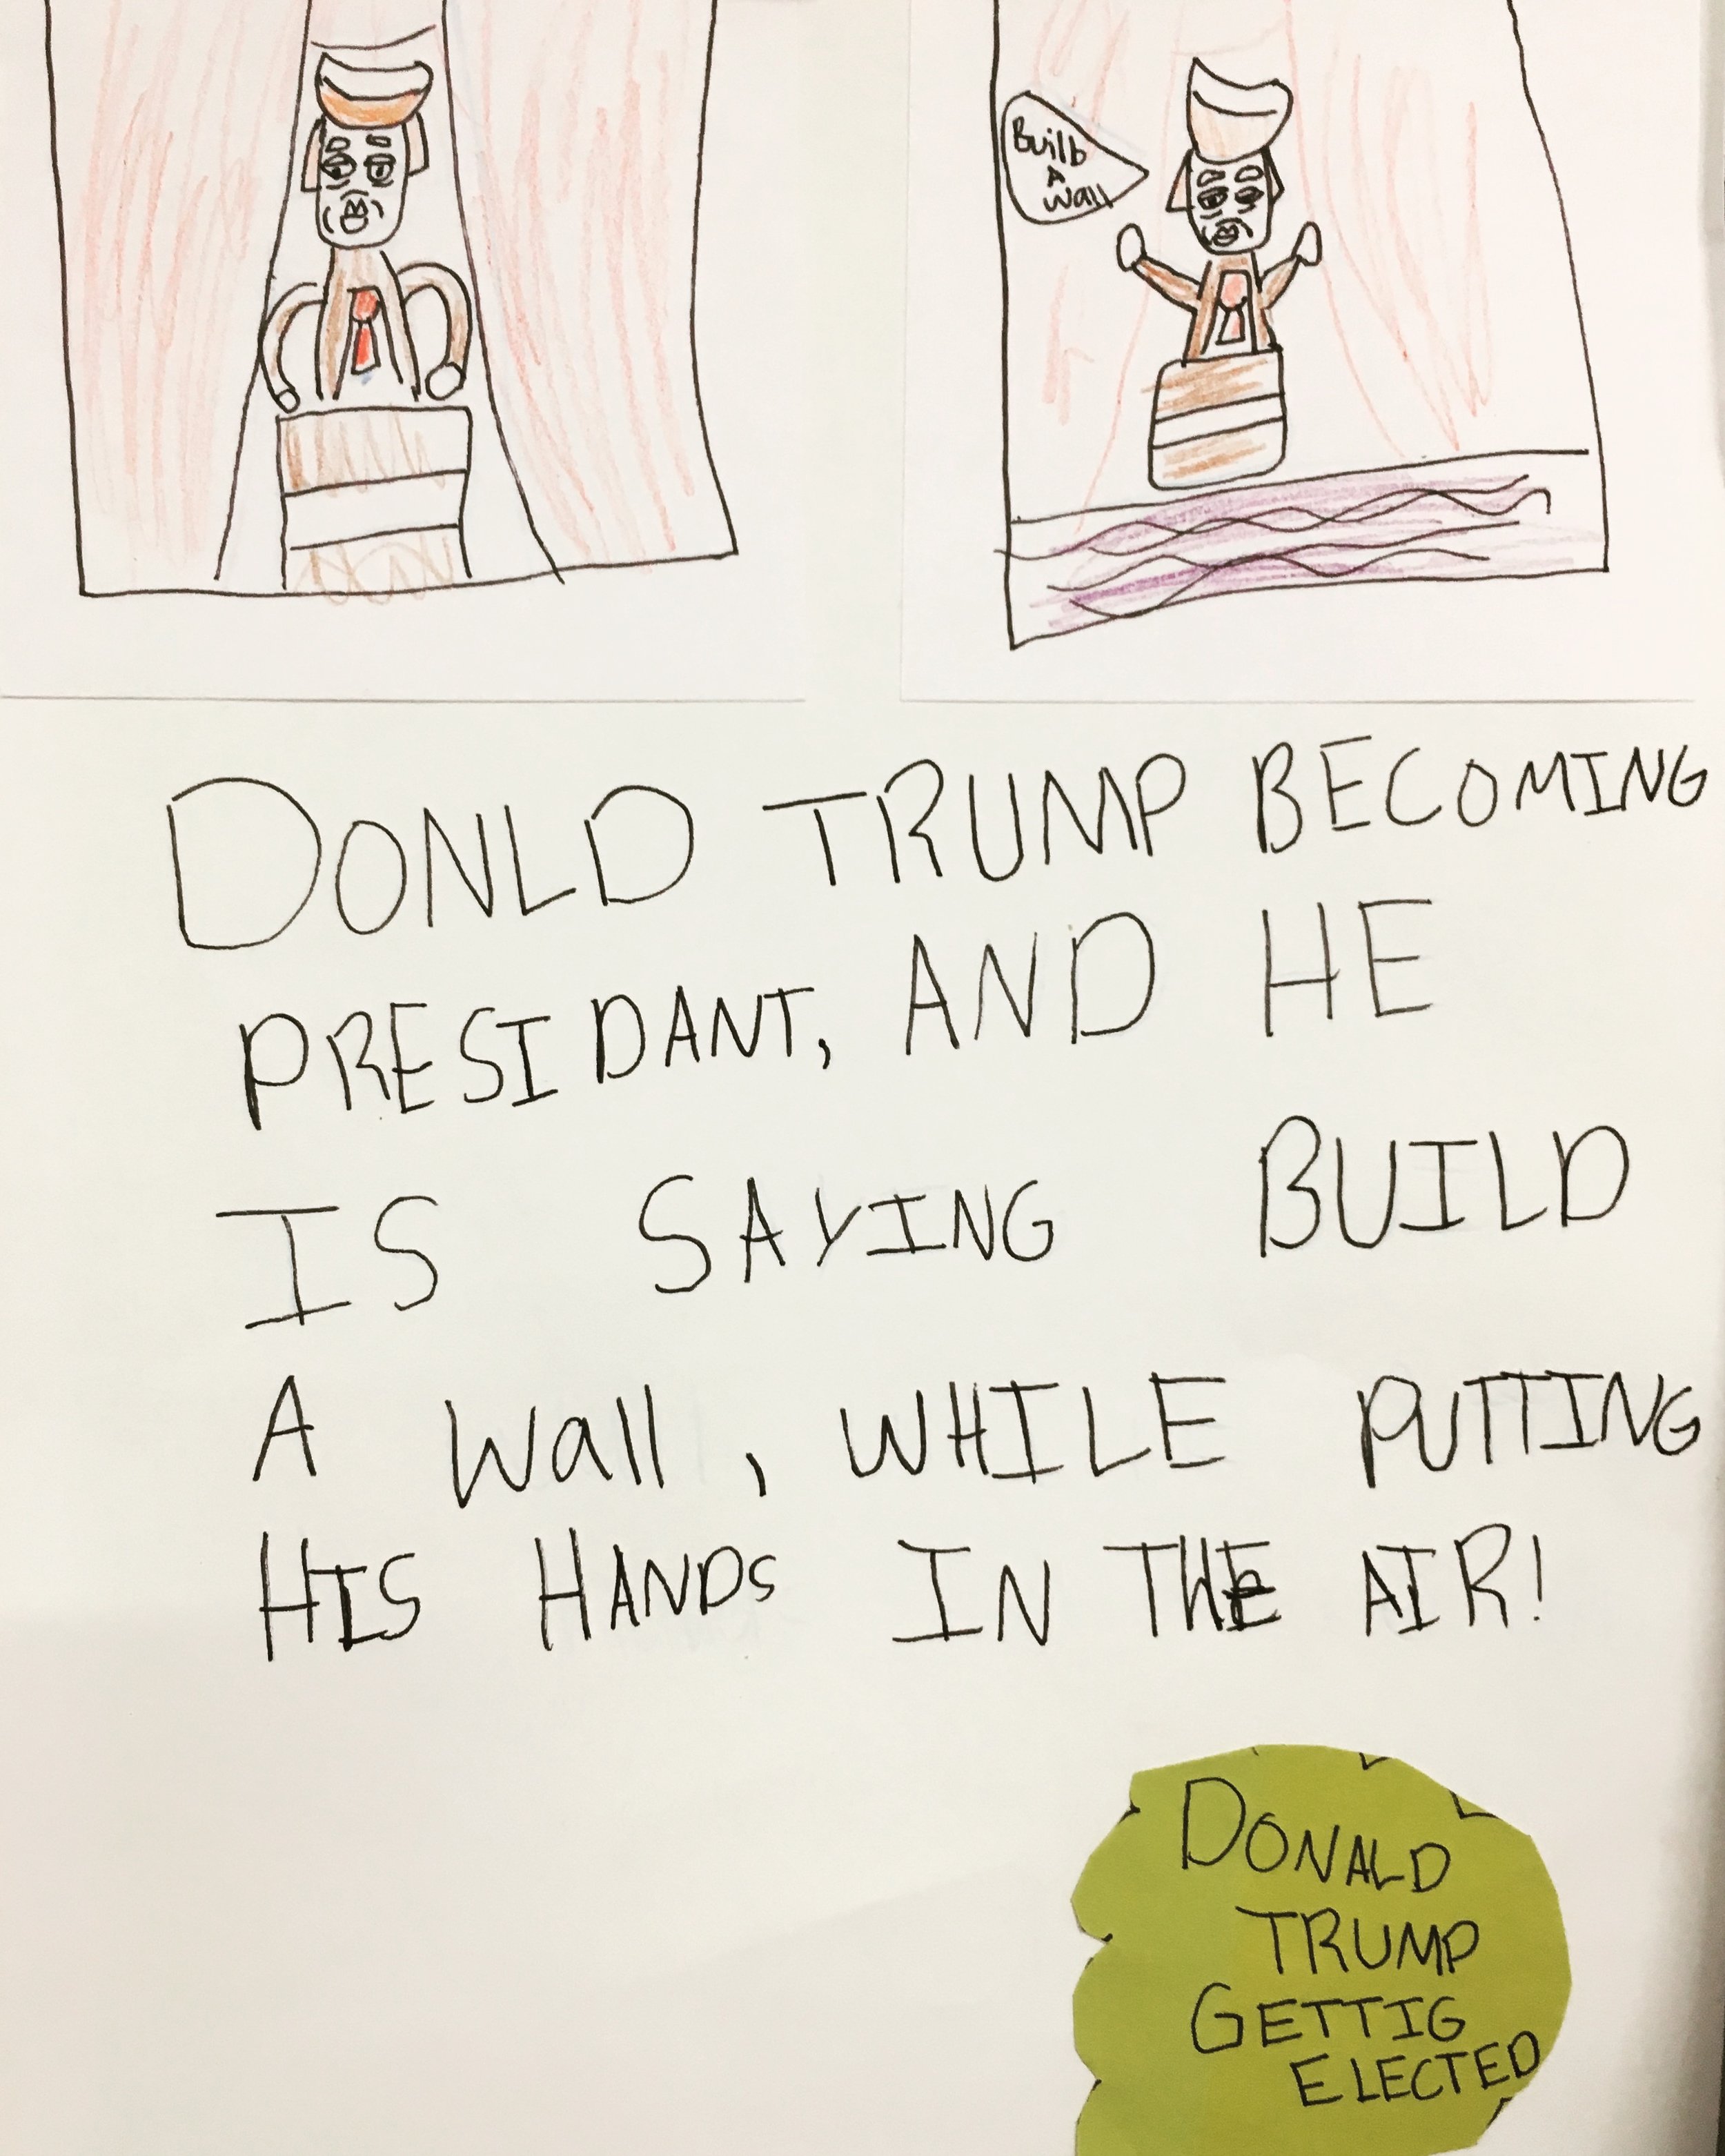 Builb
A
Wall
DONLD TRUMP BECOMING
PRESIDANT, AND HE
IS SAYING BUILD
A Wall, WHILE PUTTING
HIS HANDS IN THE AIR!
DONALD
TRUMP
GETTIG
ELECTED